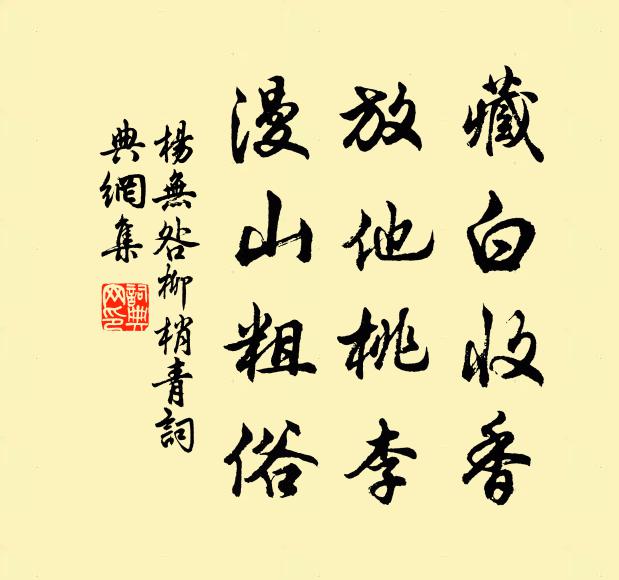 藏白收香
放他桃李
漫山粗俗
楊無咎柳梢青詞
典網集
詞典網印